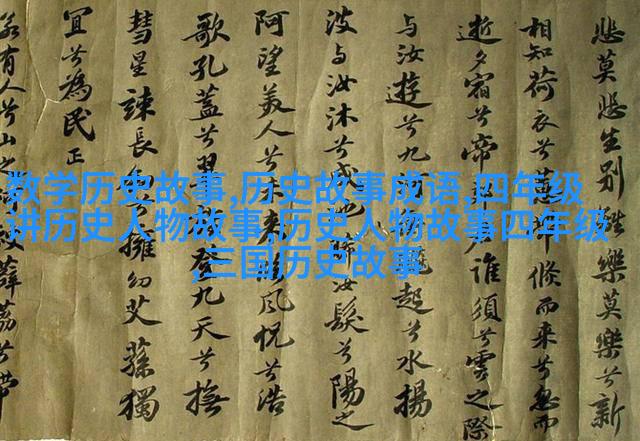 悲莫悲生別樂莫樂兮新
相知荷衣兮儵而來兮忽而
逝夕宿兮帝誰須兮雲之際
與汝遊兮九起兮水揚
波與汝沐兮咸池汝髮兮陽之
阿望美人兮來風怳兮浩
歌孔蓋兮翠登九天兮撫
彗星竦長擁幼艾蓀獨
宜兮為民正
若有人兮山之薜荔兮帶
数学历史故事,历史故事成语,四年级
讲历史人物故事,历史人物故事四年级
,三国历史故事